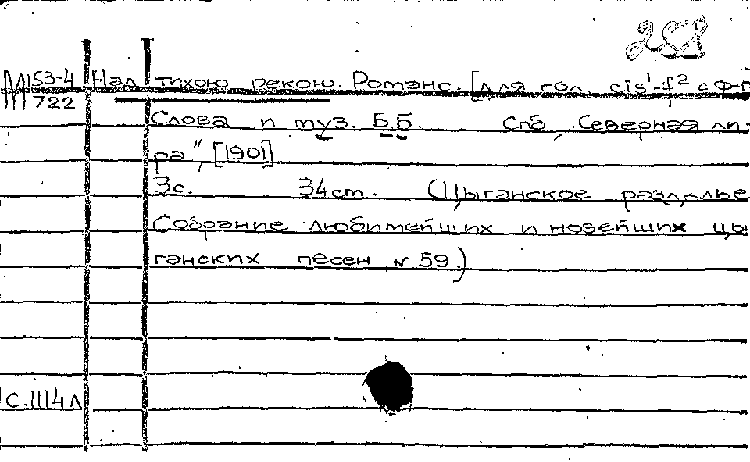 М 53-4 Над тихою рекою. Романс. [Для гол. cis¹-f² с ф-п
722
Слова и муз. Б.Б. Спб, Северная ли-
ра", [1901]
3с. 34см. (Цыганское раздолье
Собрание любимейших и новейших цы
ганских песен № 59.)
С.1114л